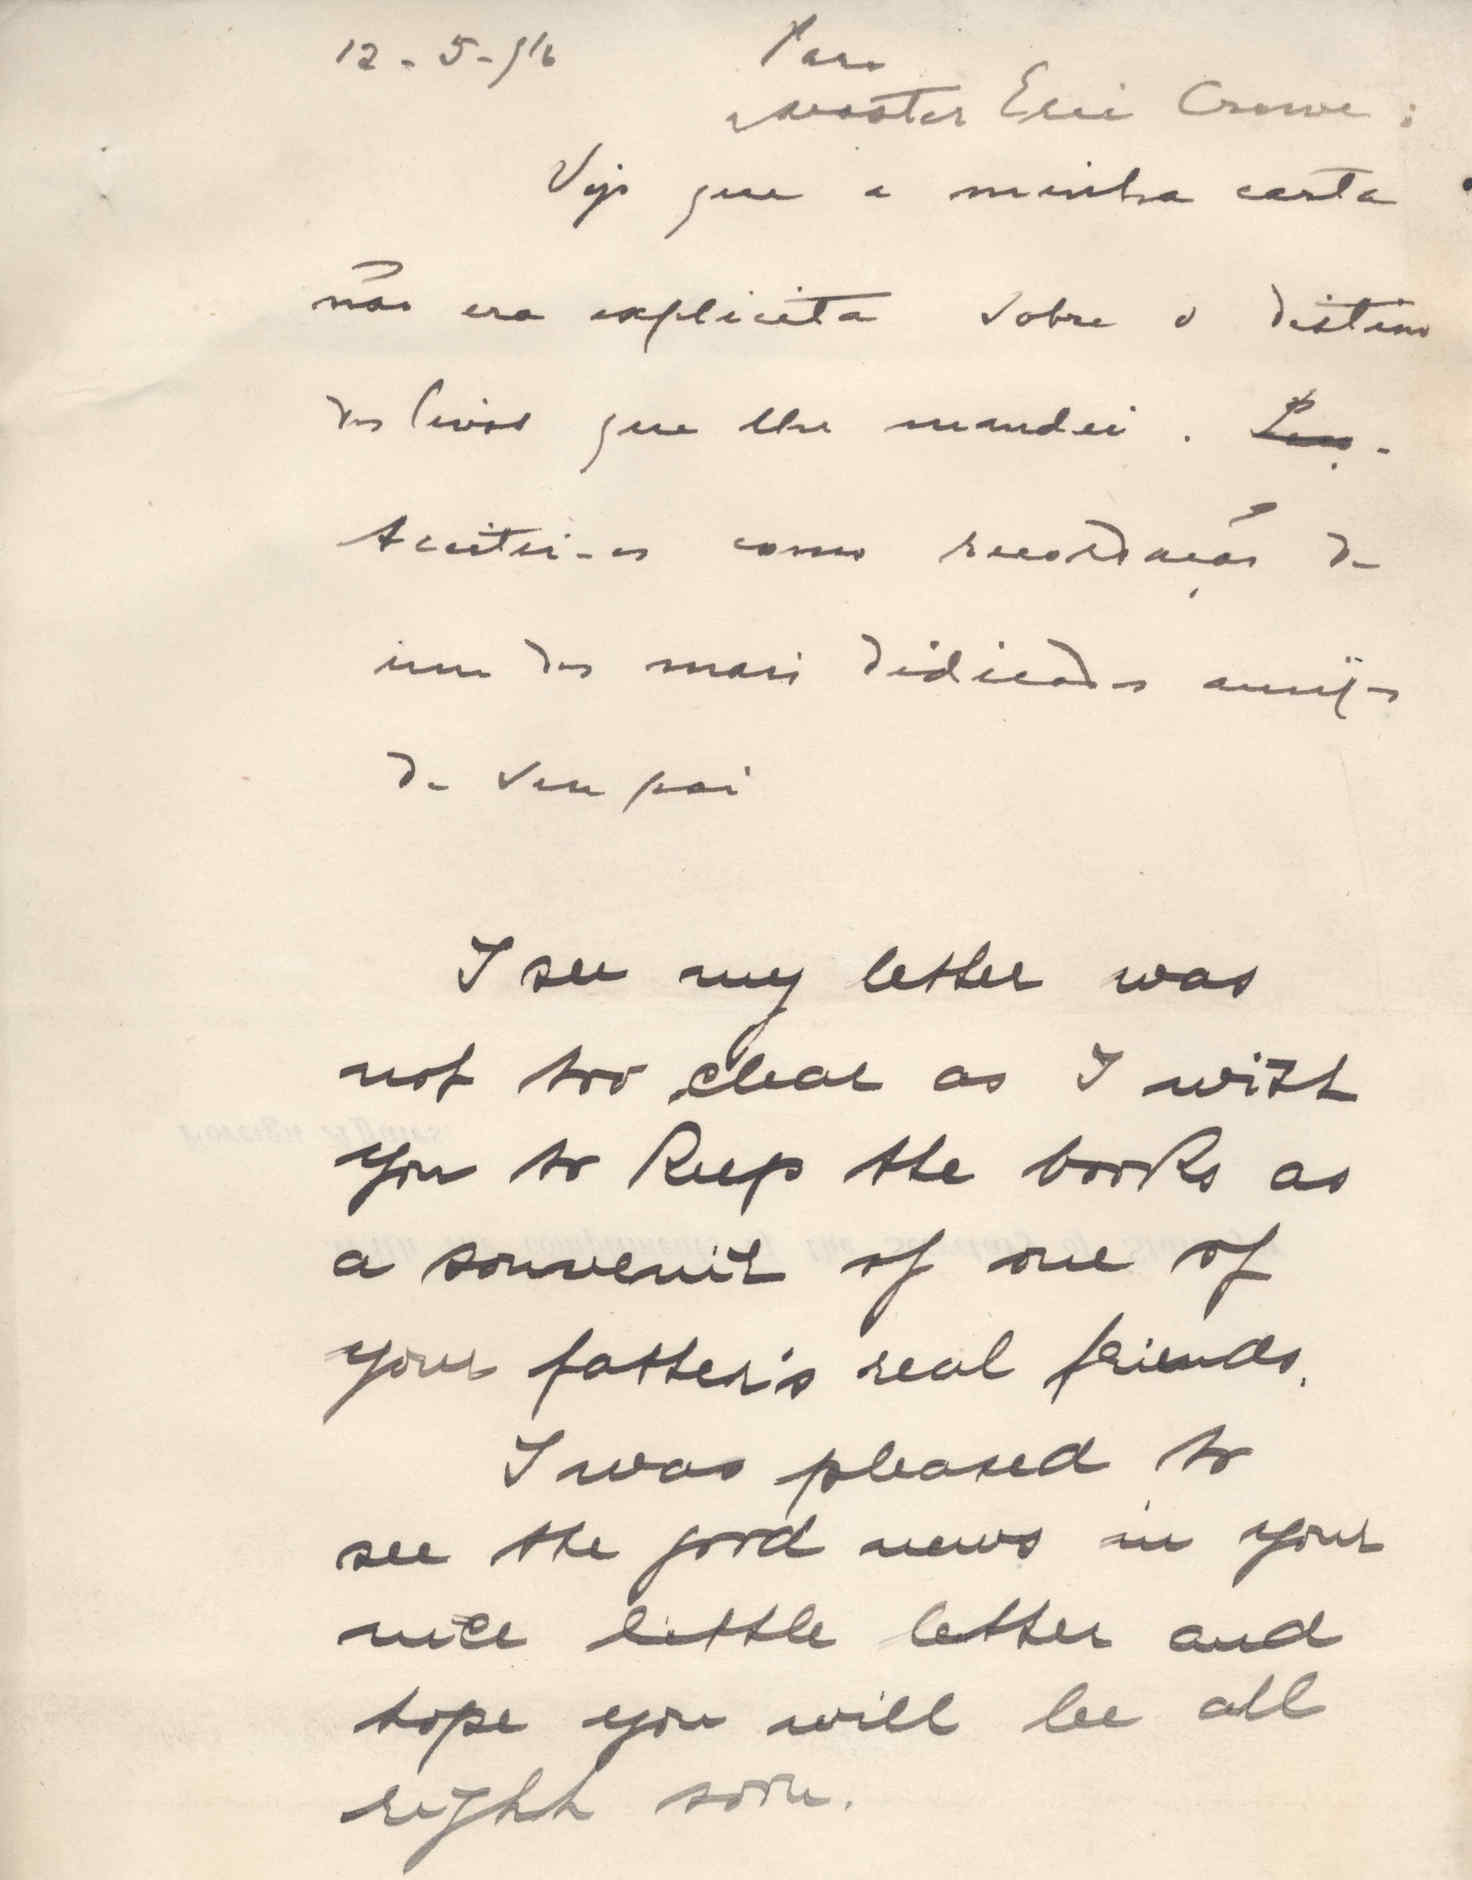 12-5-916
Para
master Eric Crowe:
Vejo que a minha carta
não era explicita sobre o destino
dos livros que lhe mandei.
Aceitei-os como recordação de
um dos mais dedicados amigos
de seu pai
I see my letter was
not too clear as I wish
you to keep the books as
a souvenir of one of
your father's real friends.
I was pleased to
see the good news in your
nice little letter and
hope you will be all
right soon.
Foreign Affairs.
With the compliments of the Secretary of State for